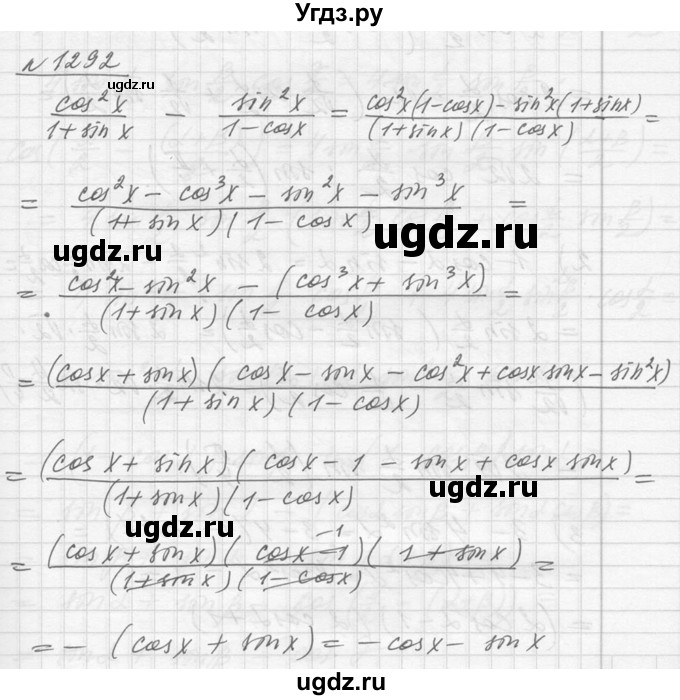 Угдз.ру
№1292
cos²x/(1+sin x) − sin²x/(1−cosx) = (cos²x(1−cosx) − sin²x(1+sinx))/((1+sinx)(1−cosx)) =
= (cos²x − cos³x − sin²x − sin³x)/((1+sinx)(1−cosx)) =
ugdz.ru
ugdz.ru
= (cos²x − sin²x − (cos³x + sin³x))/((1+sinx)(1−cosx)) =
= (cosx + sinx)(cosx − sinx − cos²x + cosx sinx − sin²x)/((1+sinx)(1−cosx))
= (cosx + sinx)(cosx − 1 − sinx + cosx sinx)/((1+sinx)(1−cosx)) =
ugdz.ru
ugdz.ru
= (cosx + sinx)(cosx − 1)(1 + sinx)/((1+sinx)(1−cosx)) =
−1
= −(cosx + sinx) = −cosx − sinx